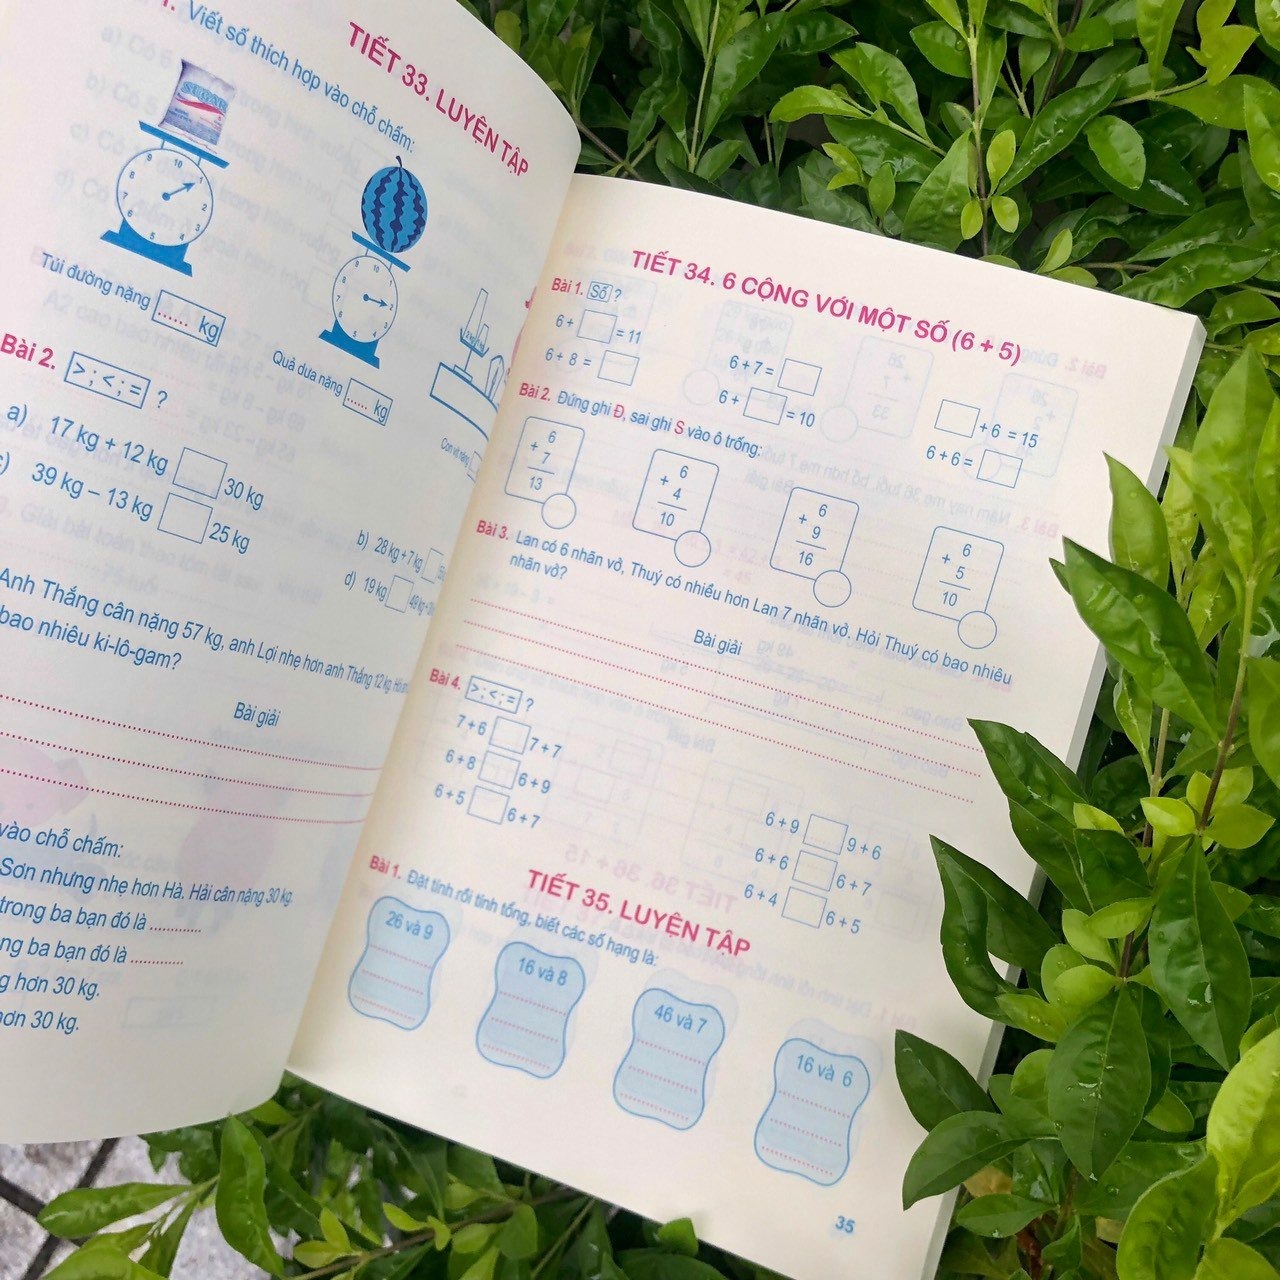 TIẾT 33. LUYỆN TẬP
1. Viết số thích hợp vào chỗ chấm:
SUGAR
Túi đường nặng ...... kg
Quả dưa nặng ...... kg
Con vịt nặng
Bài 2. > ; < ; = ?
a) 17 kg + 12 kg 30 kg
39 kg – 13 kg 25 kg
b) 28 kg + 7 kg
d) 19 kg
Anh Thắng cân nặng 57 kg, anh Lợi nhẹ hơn anh Thắng 12 kg. Hỏi
bao nhiêu ki-lô-gam?
Bài giải
vào chỗ chấm:
Sơn nhưng nhẹ hơn Hà. Hải cân nặng 30 kg.
trong ba bạn đó là ............
ba bạn đó là ............
hơn 30 kg.
30 kg.
TIẾT 34. 6 CỘNG VỚI MỘT SỐ (6 + 5)
Bài 1. Số ?
6 + = 11
6 + 7 =
+ 6 = 15
6 + 8 =
6 + = 10
6 + 6 =
Bài 2. Đúng ghi Đ, sai ghi S vào ô trống:
6
+
7
13
6
+
4
10
6
+
9
16
6
+
5
10
Bài 3. Lan có 6 nhãn vở, Thuý có nhiều hơn Lan 7 nhãn vở. Hỏi Thuý có bao nhiêu
nhãn vở?
Bài giải
Bài 4. > ; < ; = ?
7 + 6 7 + 7
6 + 8 6 + 9
6 + 5 6 + 7
6 + 9 9 + 6
6 + 6 6 + 7
6 + 4 6 + 5
TIẾT 35. LUYỆN TẬP
Bài 1. Đặt tính rồi tính tổng, biết các số hạng là:
26 và 9
16 và 8
46 và 7
16 và 6
35